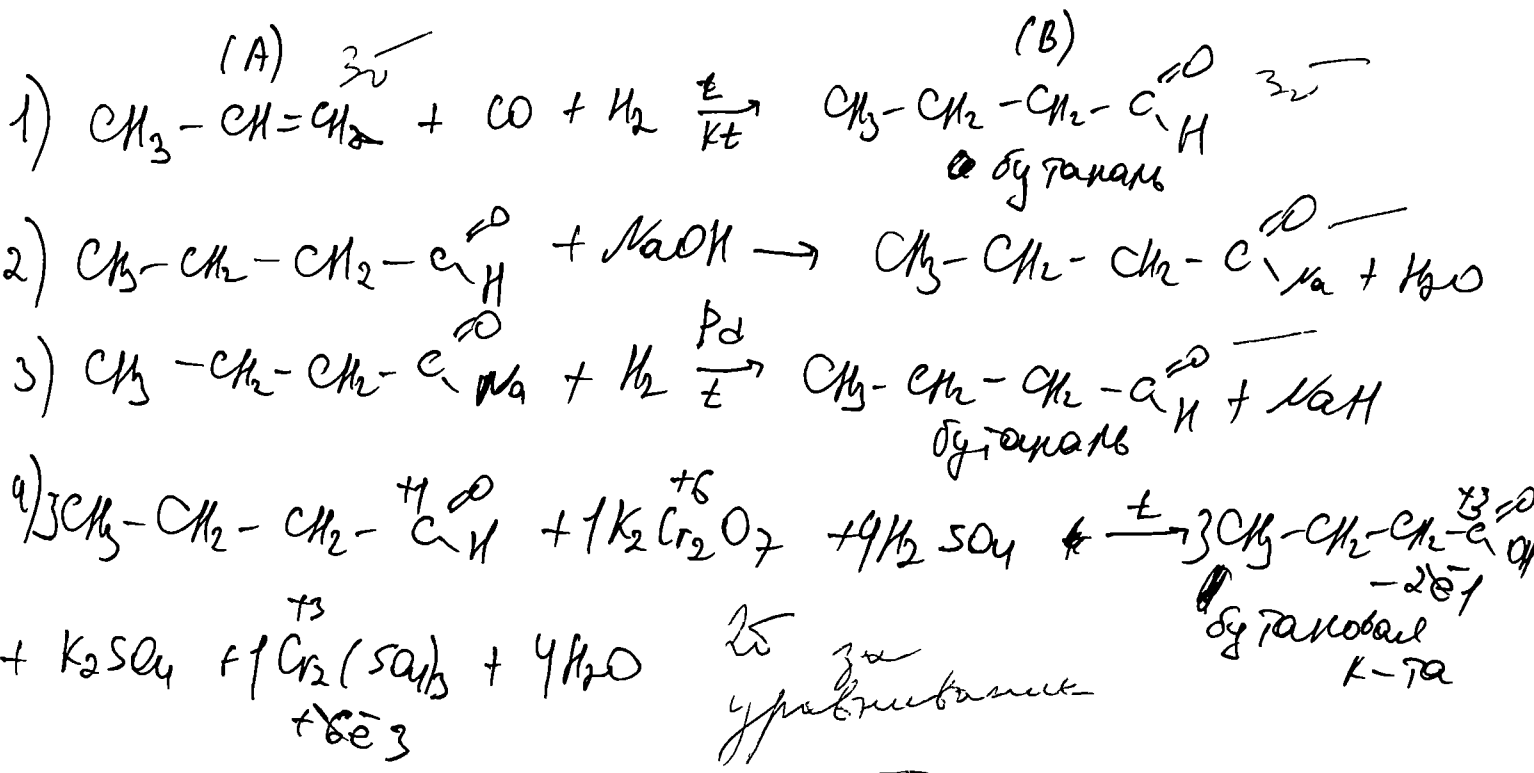 (A) 3б (B)
1) CH3 – CH = CH2 + CO + H2 t→kt CH3 – CH2 – CH2 – C =O \H 3б
бутаналь
2) CH3 – CH2 – CH2 – C =O \H + NaOH → CH3 – CH2 – CH2 – C =O \Na + H2O
3) CH3 – CH2 – CH2 – C =O \Na + H2 Pd→t CH3 – CH2 – CH2 – C =O \H + NaH
бутаналь
4) 3CH3 – CH2 – CH2 – C+1 =O \H + 1K2Cr2+6O7 + 4H2SO4 t→ 3CH3 – CH2 – CH2 – C+3 =O \OH
–2ē 1
бутановая
к-та
+ K2SO4 + 1Cr2+3(SO4)3 + 4H2O 2б за
уравнивание
+6ē 3